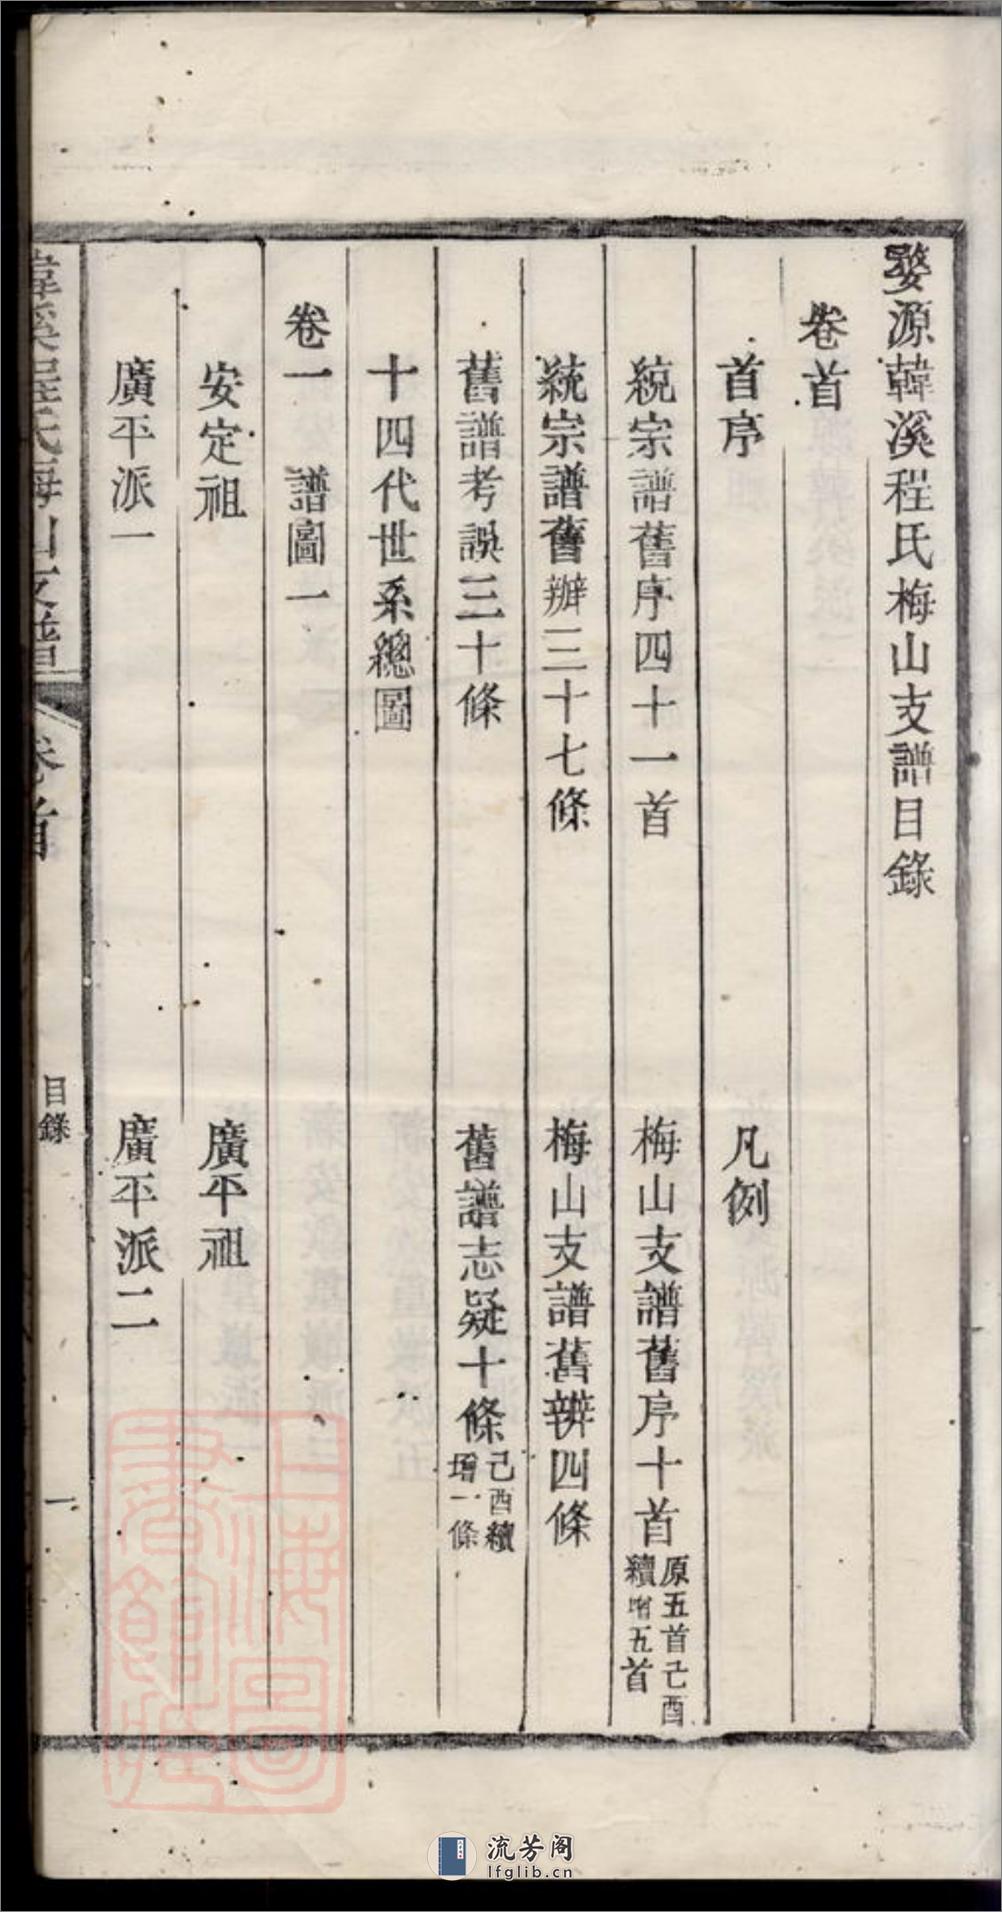 婺源韓溪程氏梅山支譜目錄
卷首
首序　凡例
統宗譜舊序四十一首　梅山支譜舊序十首　原五首己酉續增五首
統宗譜舊辯三十七條　梅山支譜舊辨四條
舊譜考誤三十條　舊譜志疑十條　己酉續增一條
十四代世系總圖
卷一　譜圖一
安定祖　廣平祖
廣平派一　廣平派二
韓溪程氏梅山支譜　卷首　目錄　一
上海圖書館藏
流芳阁
lfglib.cn